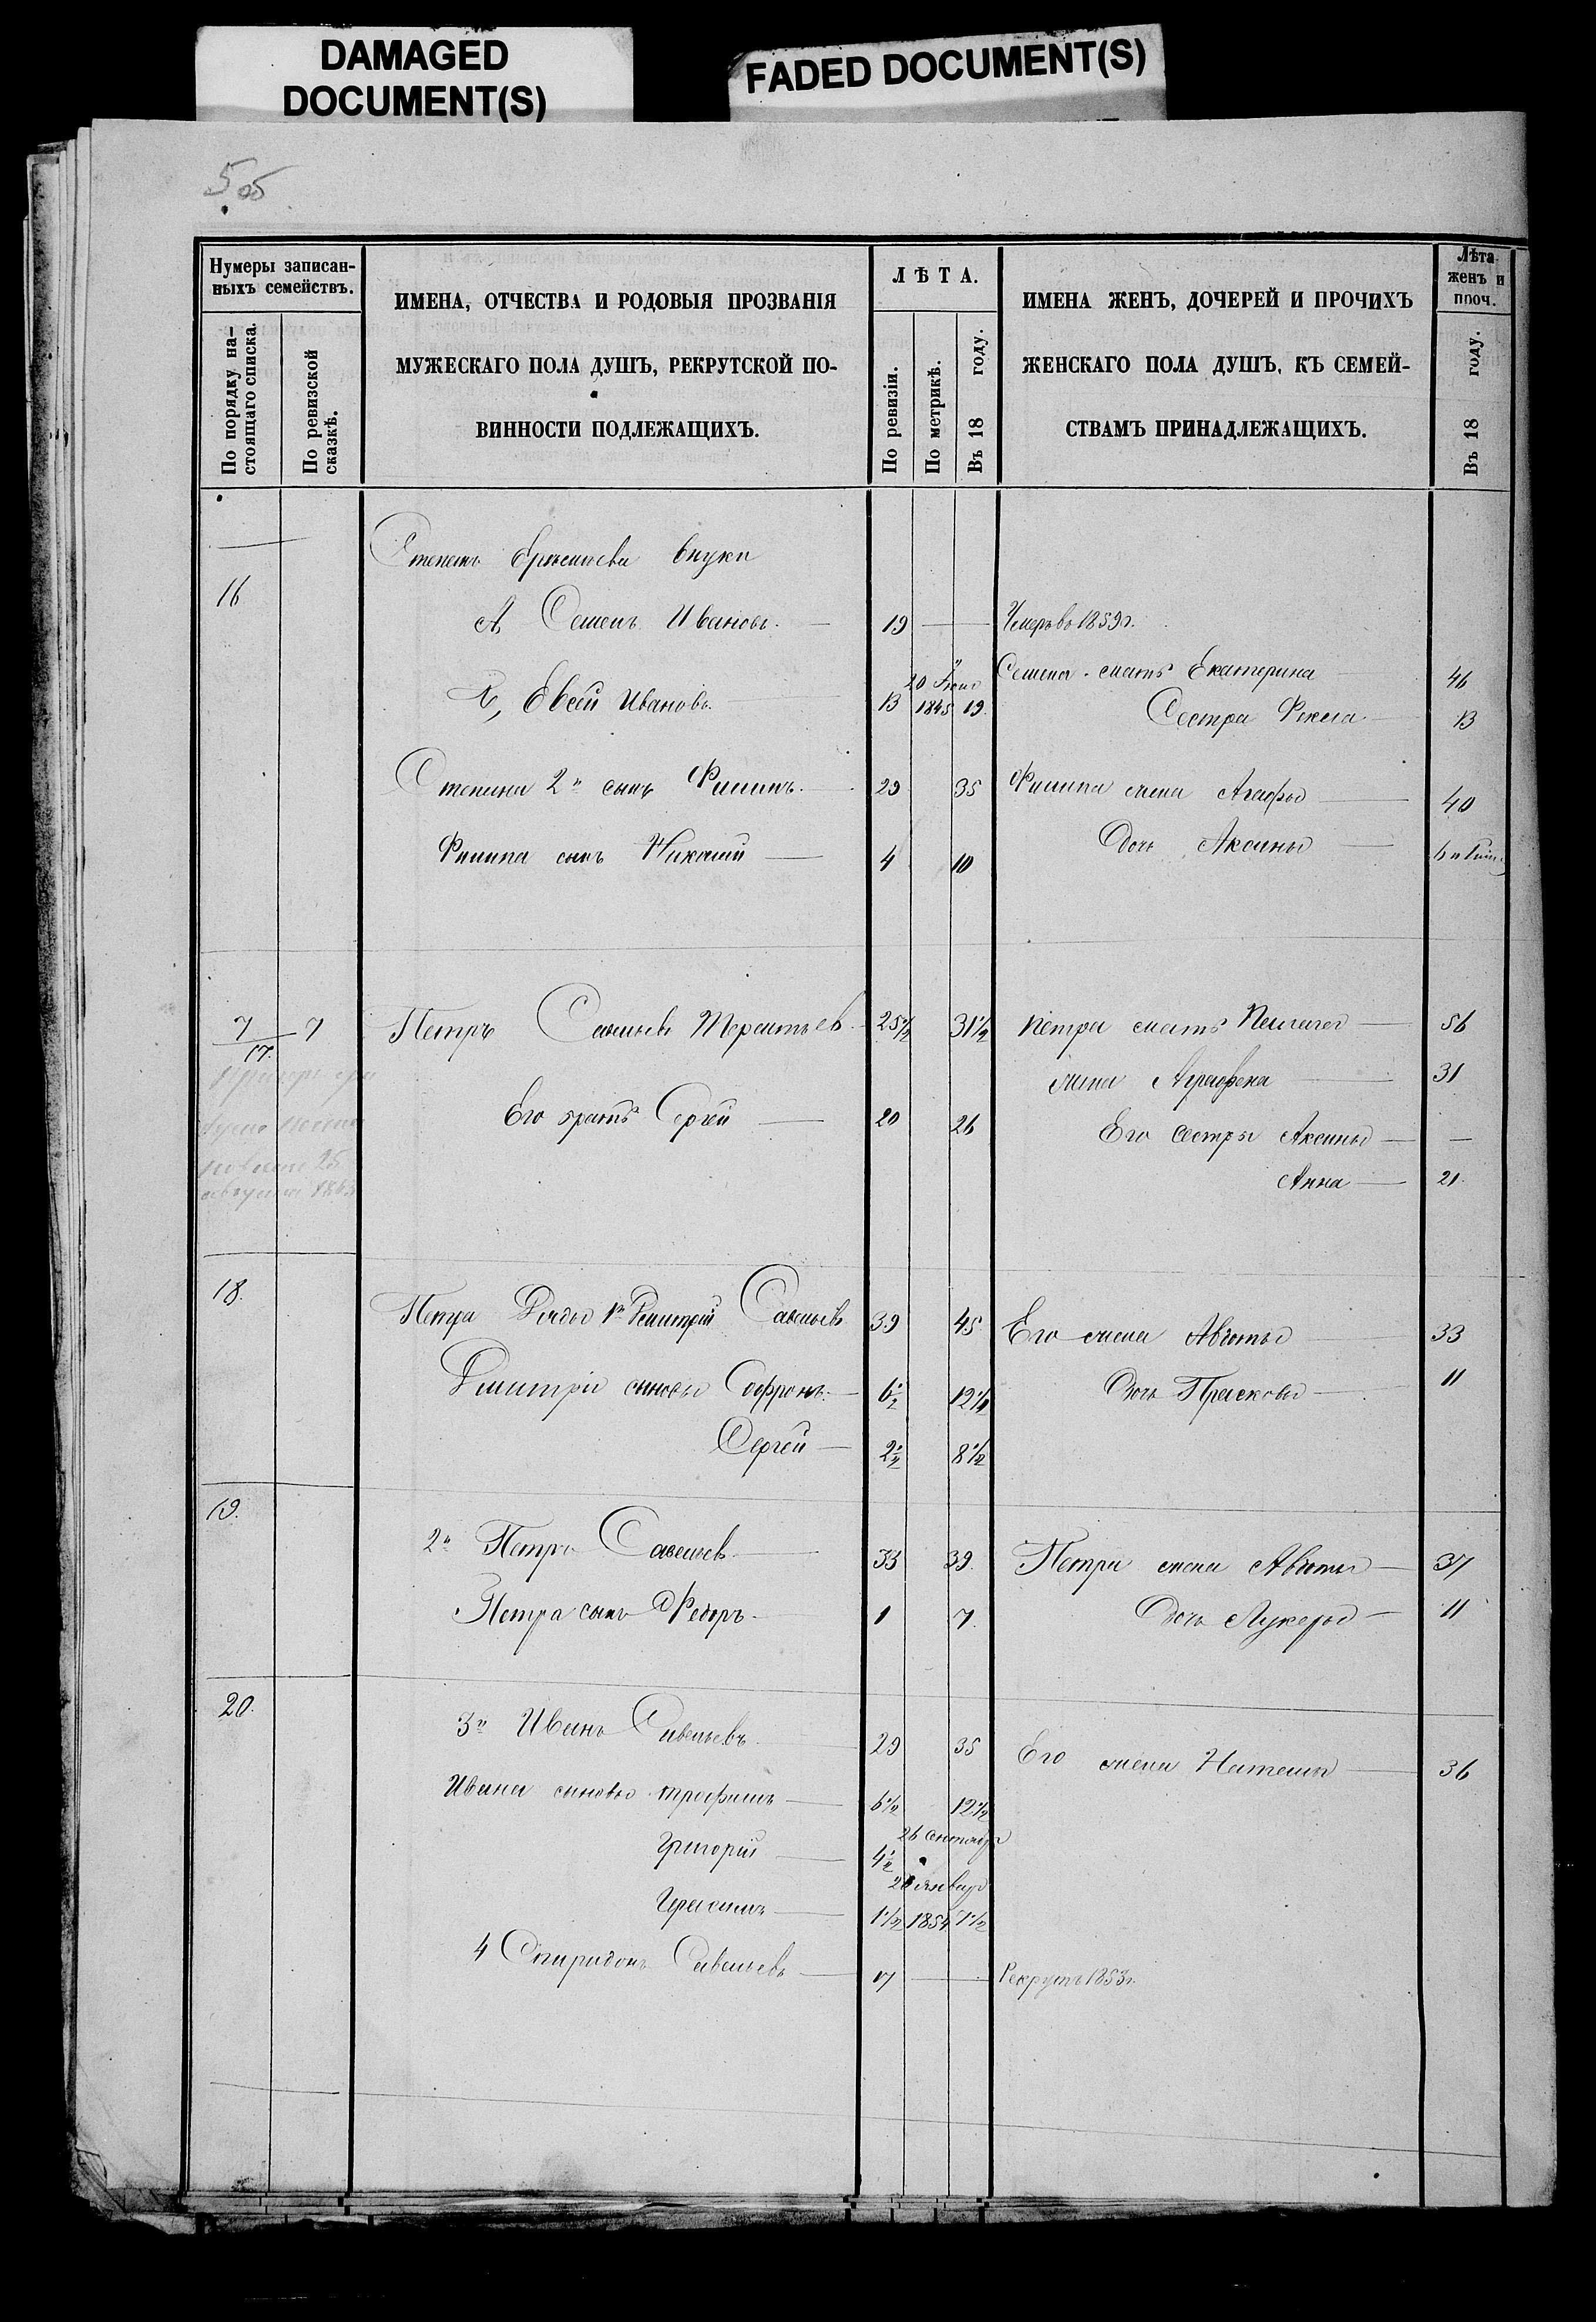 DAMAGED
DOCUMENT(S)
FADED DOCUMENT(S)
5 об
Нумеры записан-
ныхъ семействъ.
По порядку на-
стоящаго списка.
По ревизской
сказкѣ.
ИМЕНА, ОТЧЕСТВА И РОДОВЫЯ ПРОЗВАНІЯ
МУЖЕСКАГО ПОЛА ДУШЪ, РЕКРУТСКОЙ ПО-
ВИННОСТИ ПОДЛЕЖАЩИХЪ.
ЛѢТА.
По ревизіи.
По метрикѣ.
Въ 18 году.
ИМЕНА ЖЕНЪ, ДОЧЕРЕЙ И ПРОЧИХЪ
ЖЕНСКАГО ПОЛА ДУШЪ, КЪ СЕМЕЙ-
СТВАМЪ ПРИНАДЛЕЖАЩИХЪ.
Лѣта
женъ и
проч.
Въ 18 году.
внуки
16
А, Семенъ Ивановъ 19 Умеръ въ 1859г.
Семена мать Екатерина 46
20 Іюня
Евсей Ивановъ 13 1845 19
Сестра Фекла 13
Степана 2й сынъ Филипъ 29 35 Филипа жена Агафья 40
Филипа сынъ Николай 4 10 Дочь Аксинья
7 7 Петръ Савельевъ Терентьевъ 25 1/2 31 1/2 Петра мать Пелагея 56
17.
жена Аграфена 31
Его братъ Сергей 20 26 Его сестры Аксинья —
Анна 21
25
августа 1863
18. Петра дядья 1й Дмитрій Савельевъ 39 45 Его жена Авдотья 33
Дмитрія сыновья Софронъ 6 1/2 12 1/2 Дочь Прасковья 11
Сергей 2 1/2 8 1/2
19. 2й Петръ Савельевъ 33 39 Петра жена Авдотья 37
Петра сынъ Федоръ 1 7 Дочь Лукерья 11
20. 3й Иванъ Савельевъ 29 35 Его жена Наталья 36
Ивана сыновья Трофимъ 6 1/2 12 1/2
26 сентября
Григорій 4 1/2
Января
Герасимъ 1 1/2 1854 7 1/2
4 Спиридонъ Савельевъ 17 Рекрутъ 1853г.